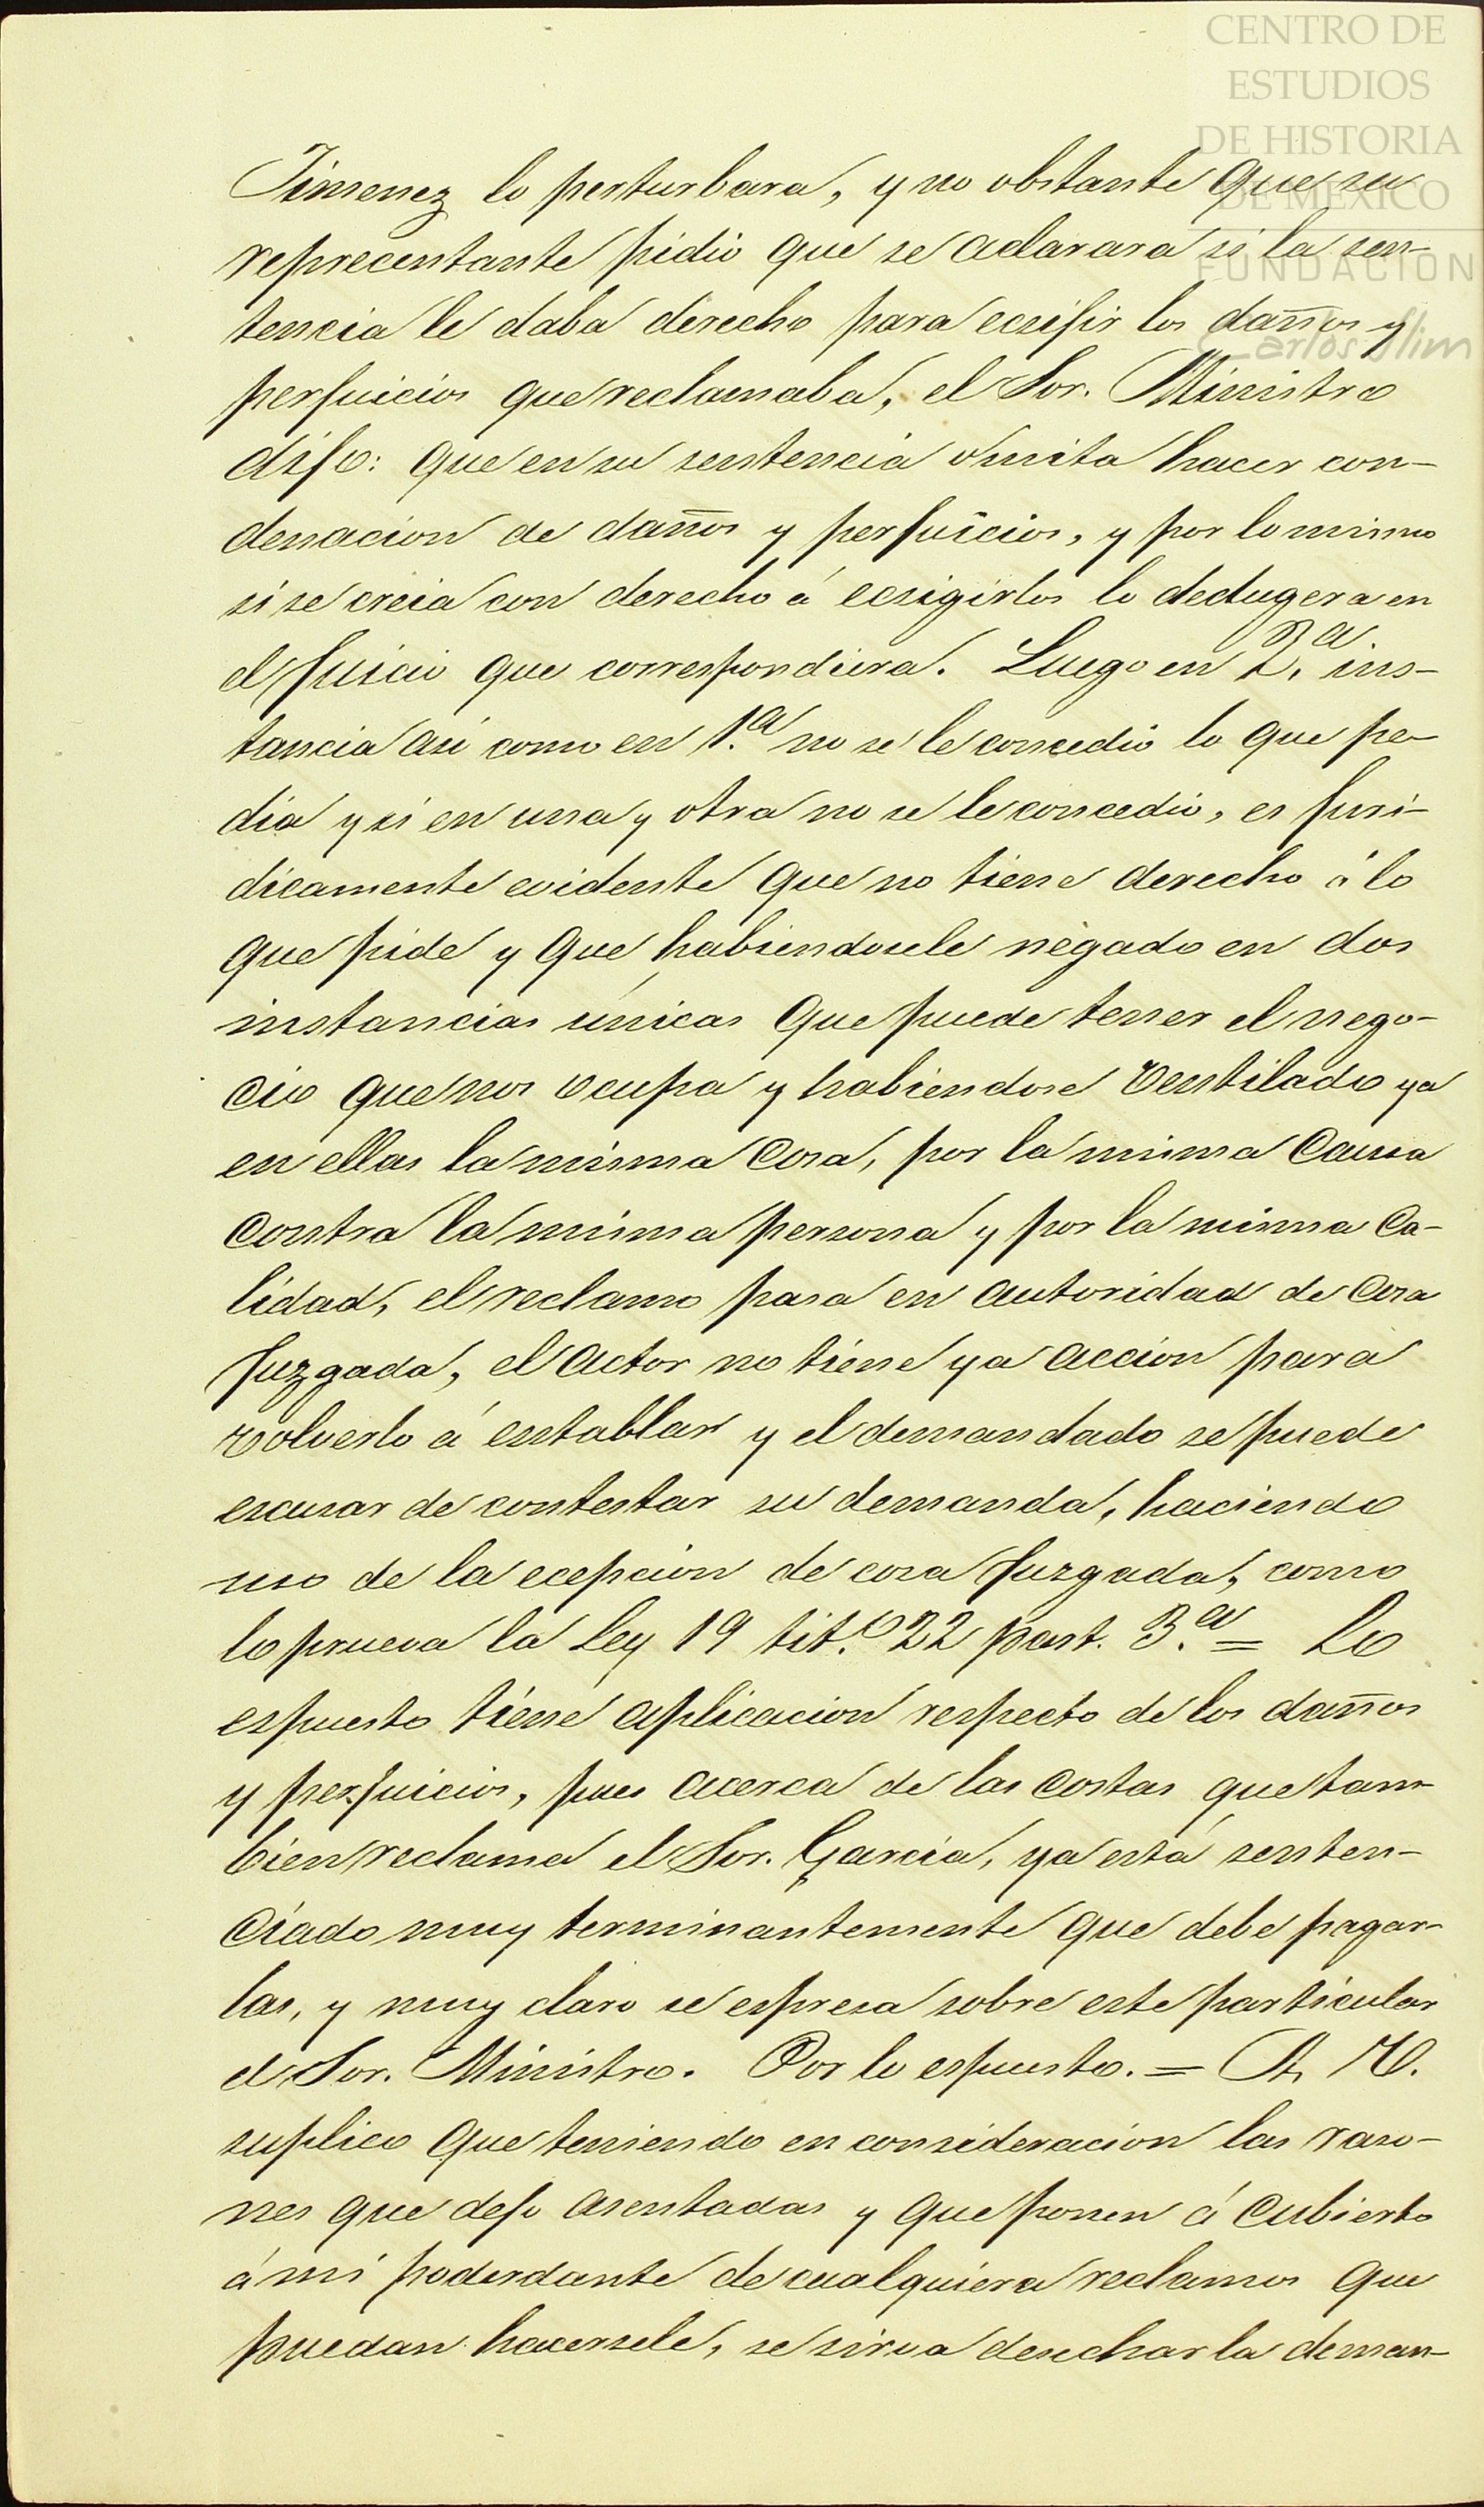 CENTRO DE
ESTUDIOS
DE HISTORIA
DE MÉXICO
FUNDACIÓN
Carlos Slim
Jimenez lo perturbara, y no obstante que su
reprecentante pidio que se aclarara si la sen-
tencia le daba derecho para ecsijir los daños y
perjuicios que reclamaba, el Sor. Ministro
dijo: que en su sentencia omitia hacer con-
denacion de daños y perjuicios, y por lo mismo
si se creia con derecho á ecsigirlos lo dedugera en
el juicio que correspondiera. Luego en 2.ª ins-
tancia asi como en 1.ª no se le concedió lo que pe-
dia y si en una y otra no se le concedio, es juri-
dicamente evidente que no tiene derecho á lo
que pide y que habiendosele negado en dos
instancias únicas que puede tener el nego-
cio que nos ocupa y habiendose ventilado ya
en ellas la misma cosa, por la misma causa
contra la misma persona y por la misma ca-
lidad, el reclamo pasa en autoridad de cosa
juzgada, el actor no tiene ya acción para
volverlo á entablar y el demandado se puede
escusar de contestar su demanda, haciendo
uso de la ecepcion de cosa juzgada, como
lo prueva la Ley 19 tit.º 22 part. 3.ª = Lo
espuesto tiene aplicacion respecto de los daños
y perjuicios, pues acerca de las costas que tam
bien reclama el Sor. Garcia, ya está senten-
ciado muy terminantemente que debe pagar-
las, y muy claro se espresa sobre este particular
el Sor. Ministro. Por lo espuesto. = A, U.
suplico que teniendo en consideracion las raso-
nes que dejo asentadas y que ponen á cubierto
á mi poderdante de cualquiera reclamos que
puedan hacersele, se sirva desechar la deman-